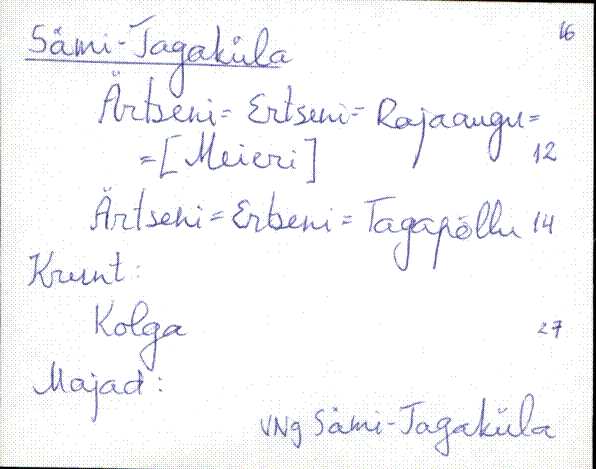 16
Sämi-Tagaküla
Ärtseni = Ertseni = Rajaaugu =
= [Meieri] 12
Ärtseni = Erbeni = Tagapõllu 14
Krunt:
Kolga 27
Majad:
VNg Sämi-Tagaküla